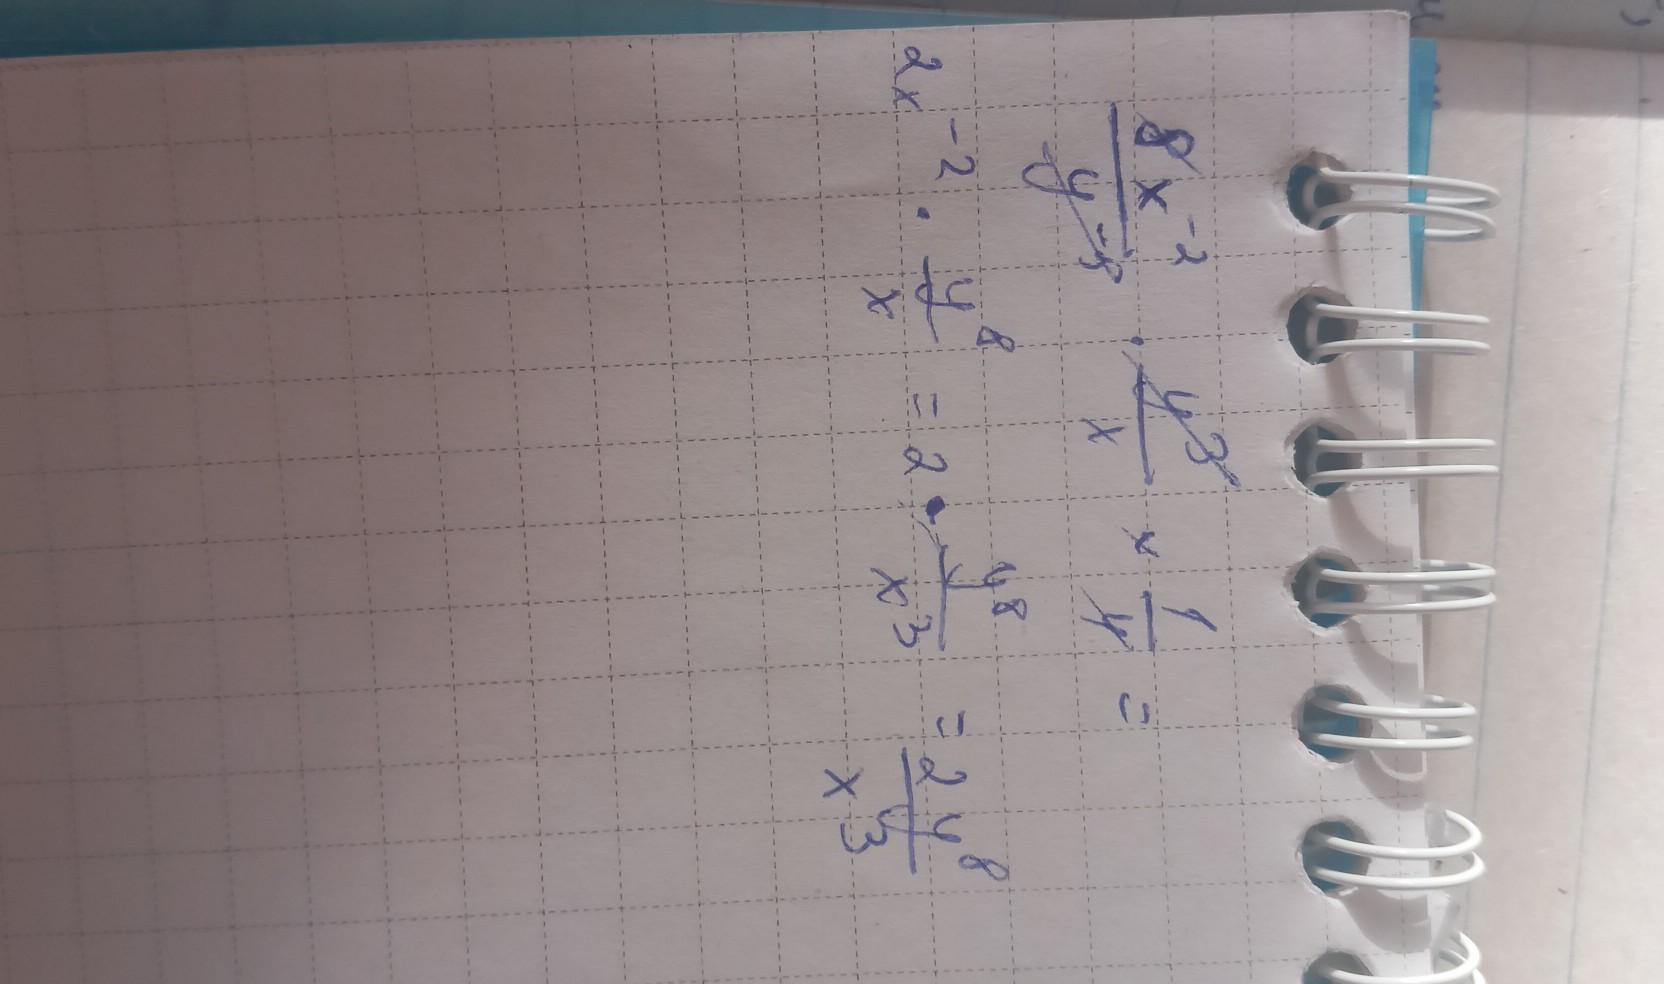 8x⁻²/y⁻⁵ · y³/x × 1/4 =
2x⁻² · y⁸/x = 2 · y⁸/x³ = 2y⁸/x³